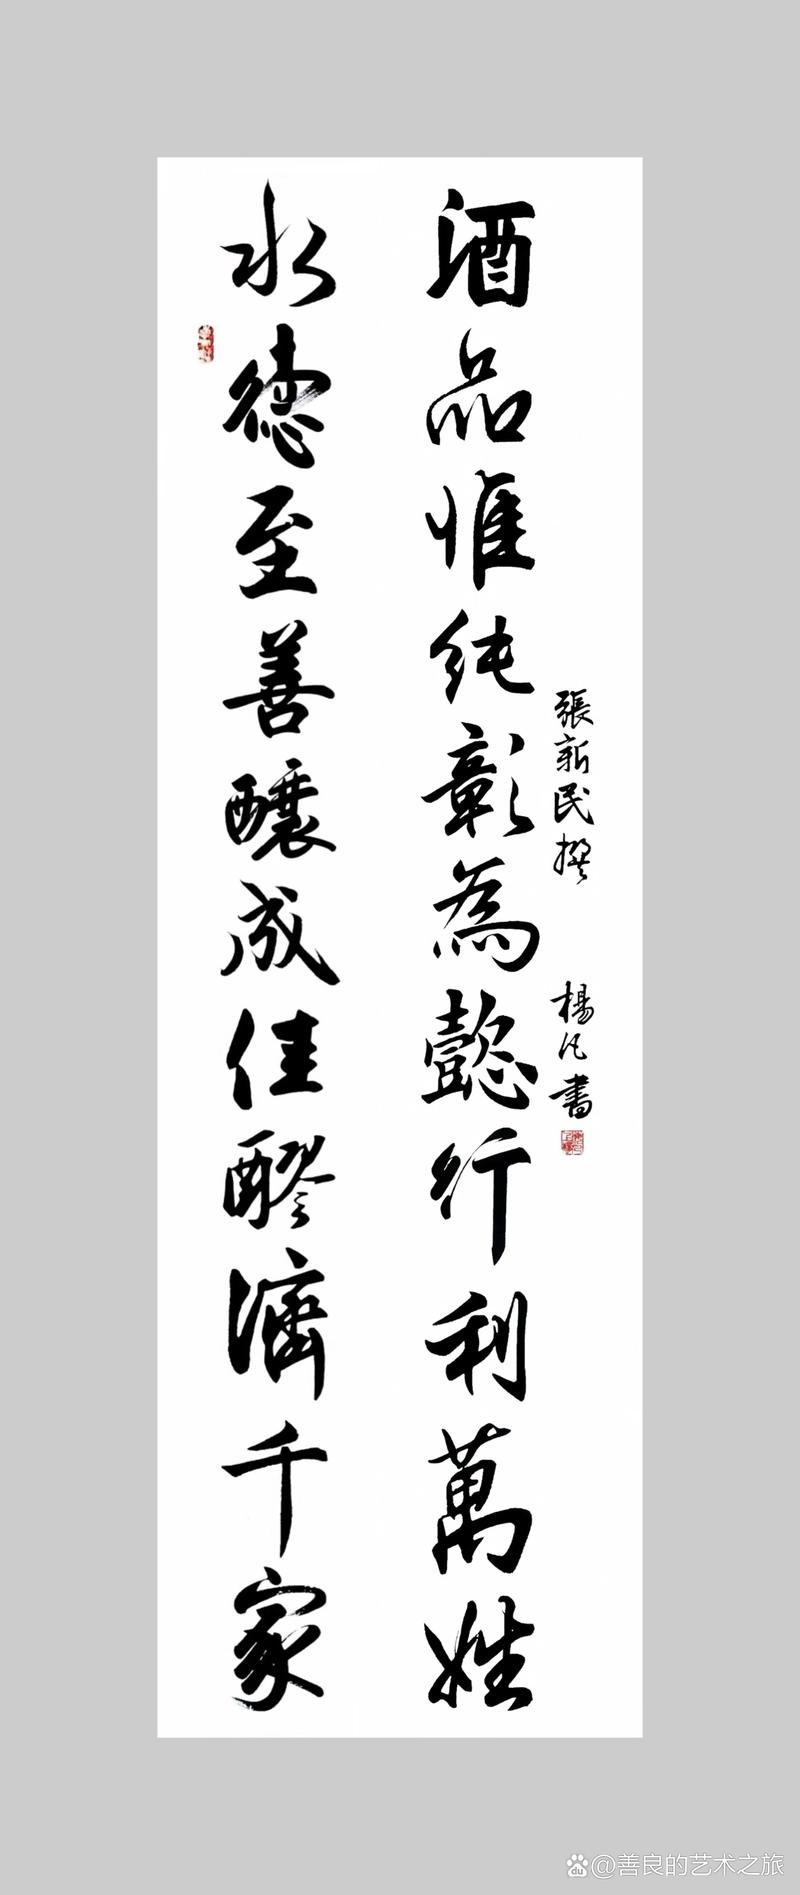 酒品惟純彰為懿行利萬姓
水德至善釀成佳醪濟千家
張新民撰
楊凡書
@善良的艺术之旅